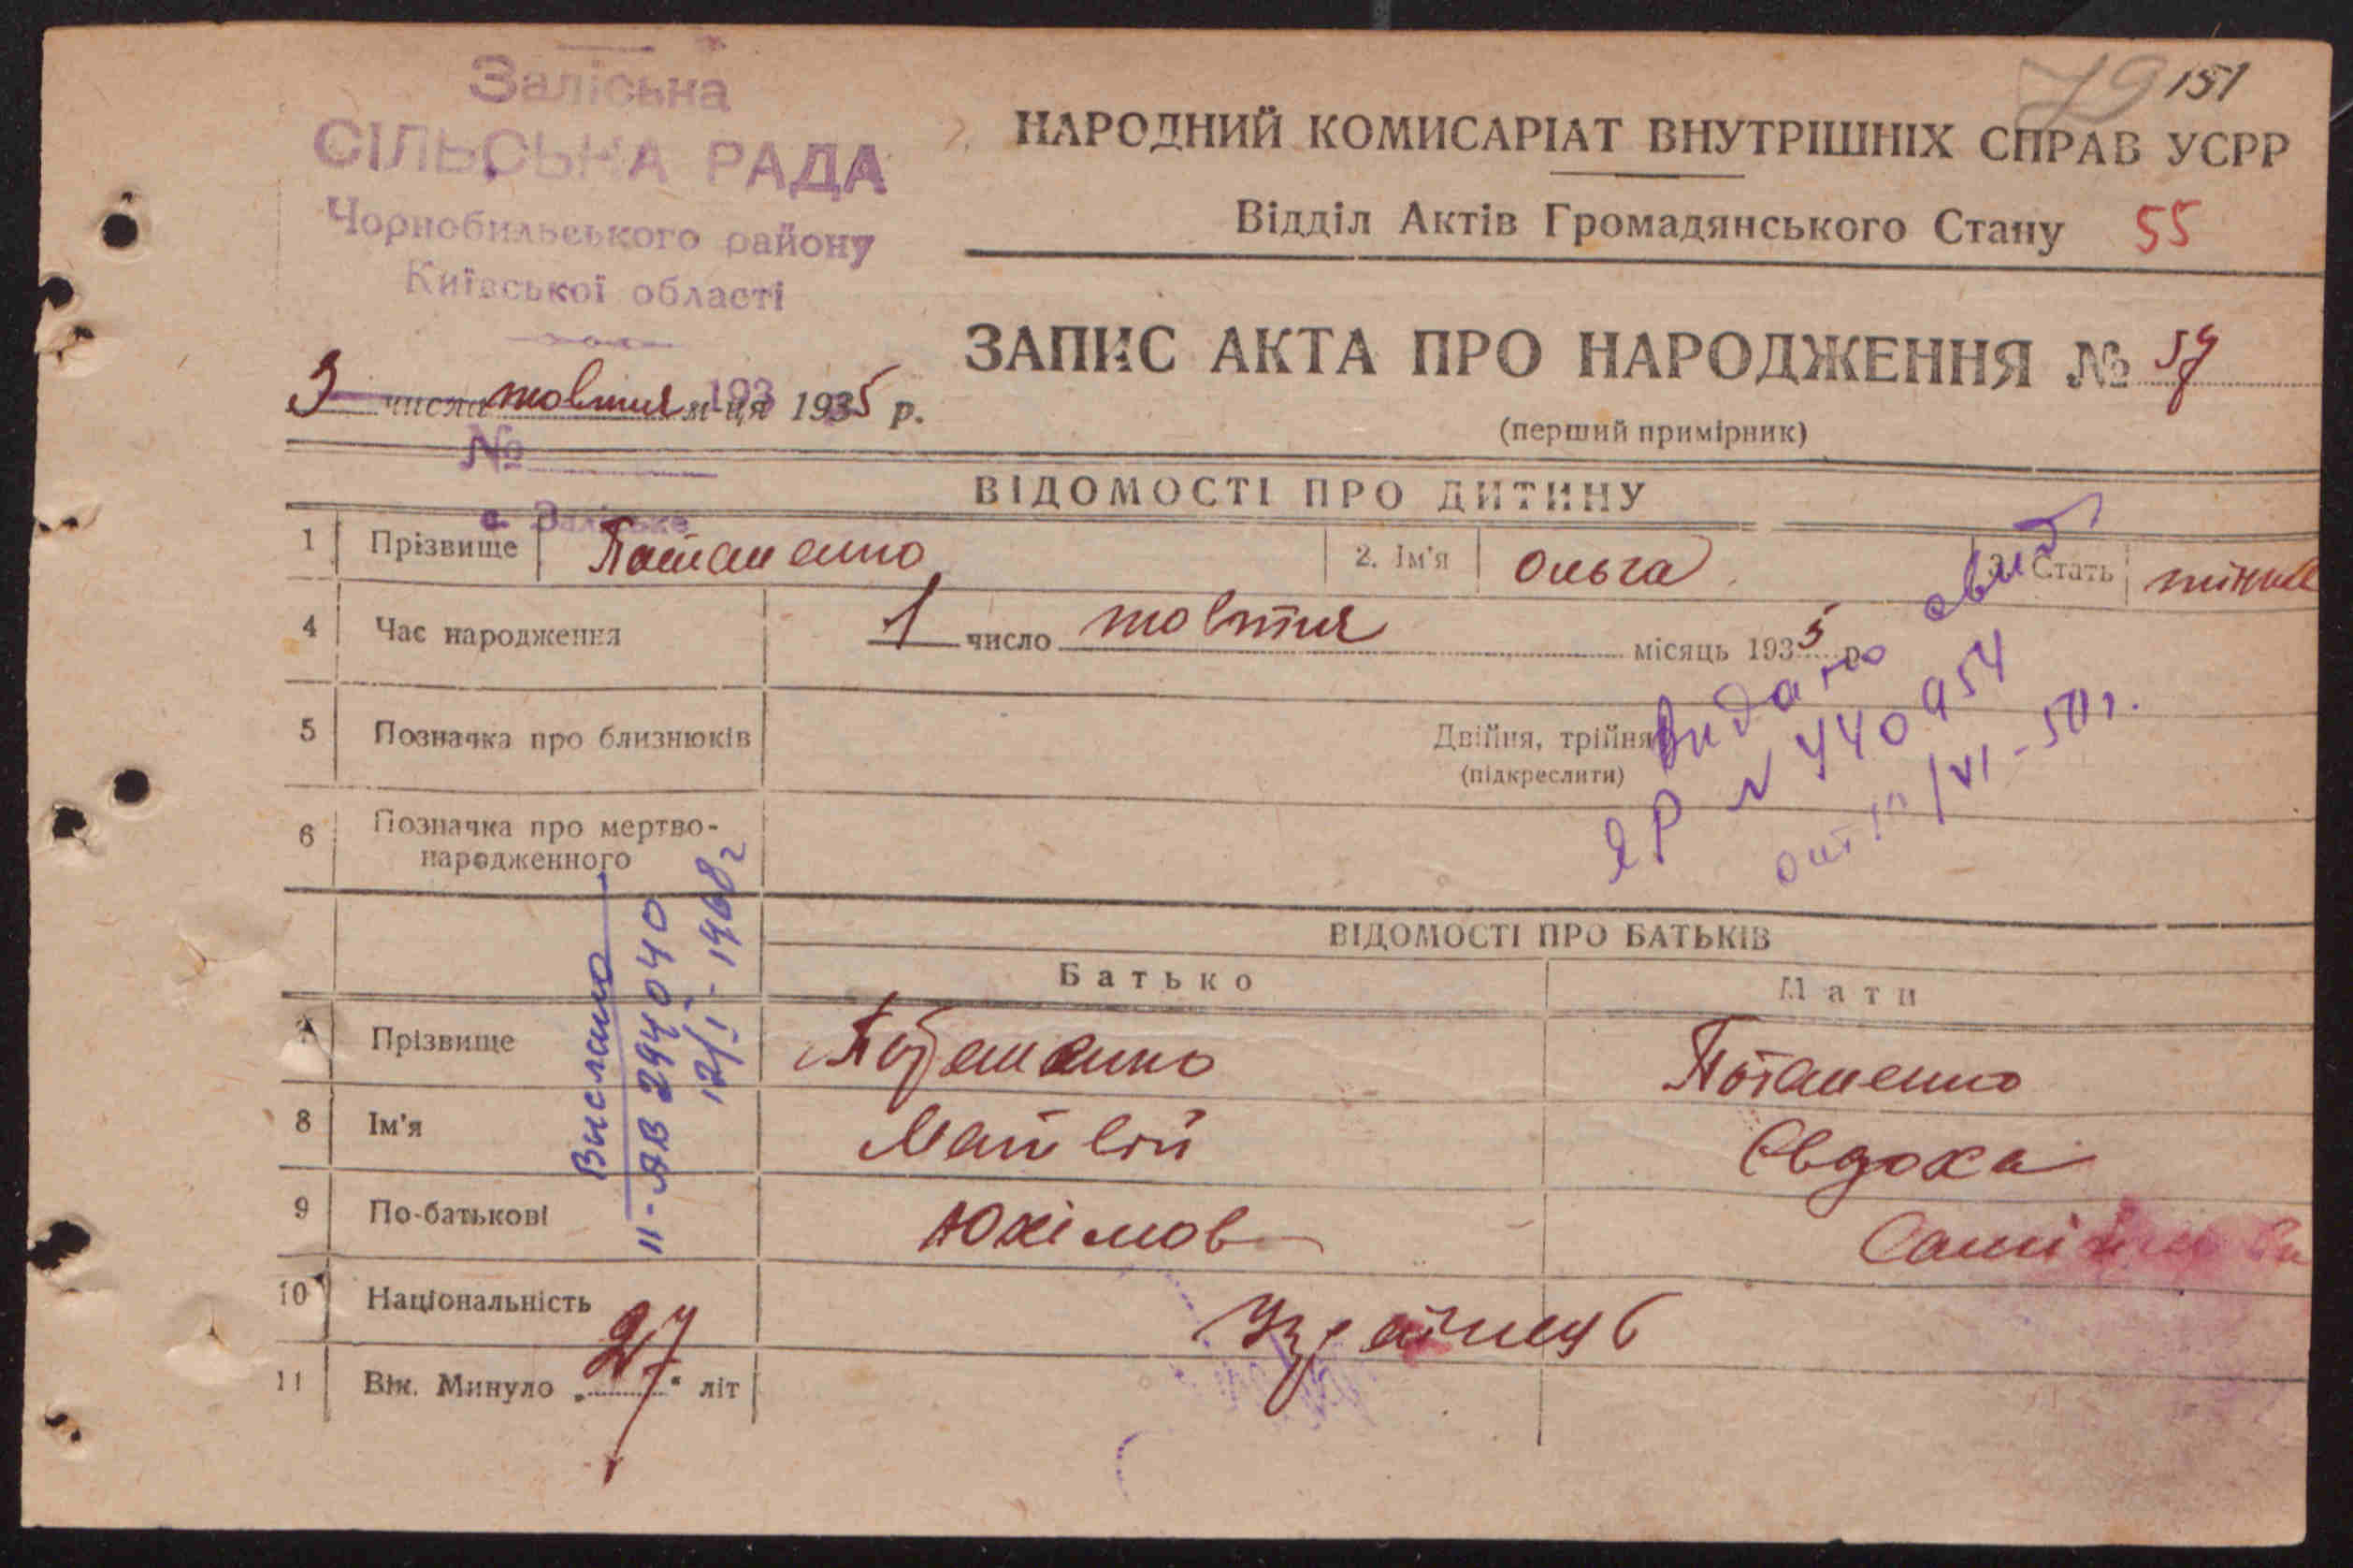 Заліська
СІЛЬСЬКА РАДА
Чорнобильського району
Київської області
79 151
НАРОДНИЙ КОМИСАРІАТ ВНУТРІШНІХ СПРАВ УСРР
Відділ Актів Громадянського Стану 55
ЗАПИС АКТА ПРО НАРОДЖЕННЯ № 57
(перший примірник)
3 числа жовтня м-ця 193 1935 р.
№
с. Заліське
ВІДОМОСТІ ПРО ДИТИНУ
1 Прізвище Потапенко 2. Ім'я Ольга 3. Стать
4 Час народження 1 число жовтня місяць 1935 р.
5 Позначка про близнюків Двійня, трійня
(підкреслити)
6 Позначка про мертво-
народженного
Видано свид
ЯР № 440954
VI-50 г.
Выслано
II-АВ 294040
12/I-1968 г
ВІДОМОСТІ ПРО БАТЬКІВ
Батько Мати
7 Прізвище Потапенко Потапенко
8 Ім'я Матвій Євдоха
9 По-батькові Юхімов
10 Національність
11 Вік. Минуло „27" літ